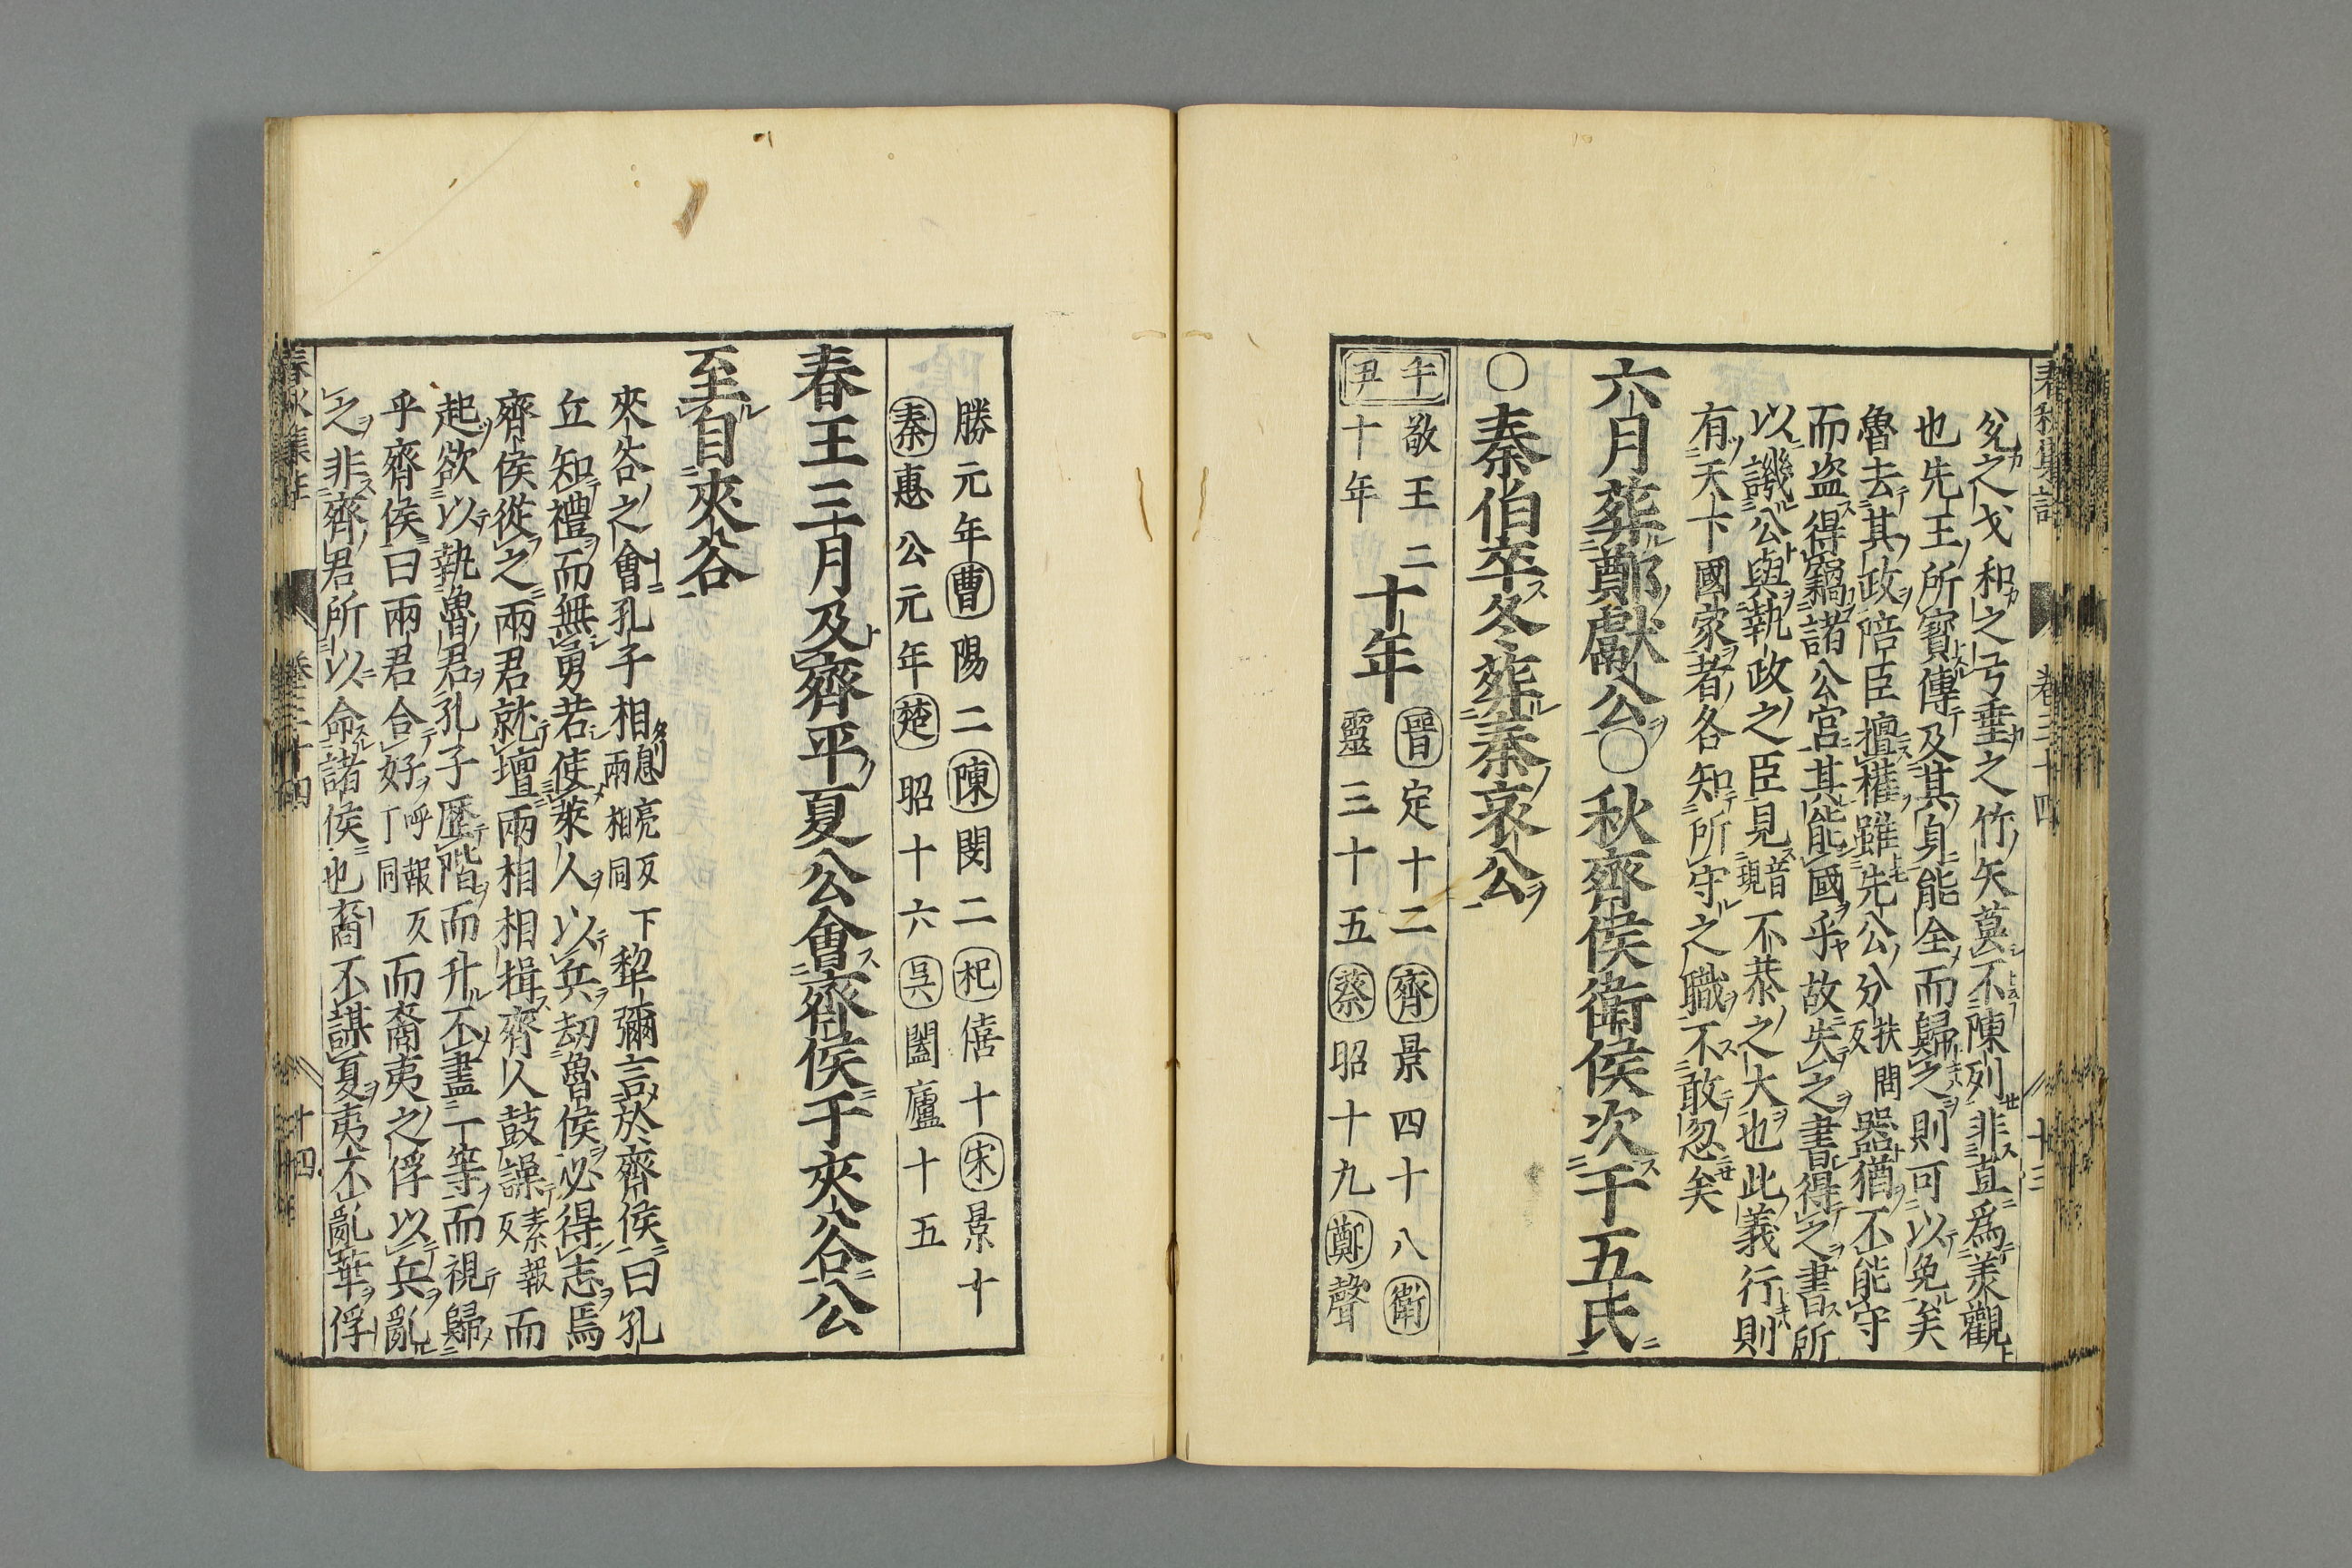 兊之戈和之弓垂之竹矢莫不陳列非直爲美觀
也先王所寳傳及其身能全而歸之則可以免矣
魯去其政陪臣擅權雖先公分扶問反器猶不能守
而盗得竊諸公宮其能國乎故失之書得之書所
以譏公與執政之臣見音現不恭之大也此義行則
有天下國家者各知所守之職不敢忽矣
六月葬鄭獻公○秋齊侯衞侯次于五氏
○秦伯卒冬葬秦哀公
敬王二十年晉定十二齊景四十八衞
十年靈三十五蔡昭十九鄭聲
勝元年曹陽二陳閔二杞僖十宋景十
秦惠公元年楚昭十六吳闔廬十五
春王三月及齊平夏公會齊侯于夾谷公
至自夾谷
夾谷之會孔子相息亮反下兩相相同犂彌言於齊侯曰孔
丘知禮而無勇若使萊人以兵劫魯侯必得志焉
齊侯從之兩君就壇兩相相揖齊人鼓譟素報反而
起欲以執魯君孔子歷階而升不盡一等而視歸
乎齊侯曰兩君合好呼報反下同而裔夷之俘以兵亂
之非齊君所以命諸侯也裔不謀夏夷不亂華俘
春秋集註 卷三十四 十四